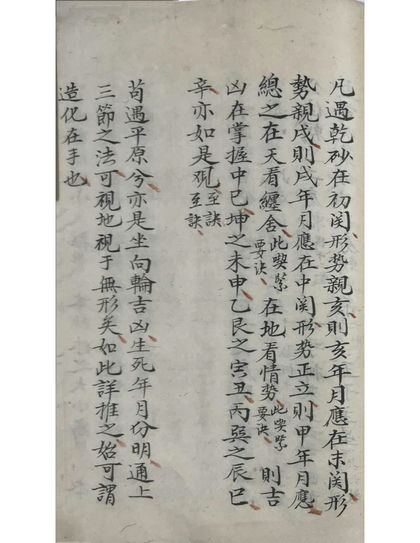 凡遇乾砂在初関形勢親亥則亥年月應在末関形
勢親戌則戌年月應在中関形勢正立則甲年月應
總之在天看纏舍此喫緊要訣在地看情勢此喫緊要訣則吉
凶在掌握中已坤之未申乙艮之寅丑丙巽之辰巳
辛亦如是覌至訣至訣
苟遇平原兮亦是坐向輪吉凶生死年月份明通上
三節之法可視地視于無形矣如此詳推之始可謂
造化在手也